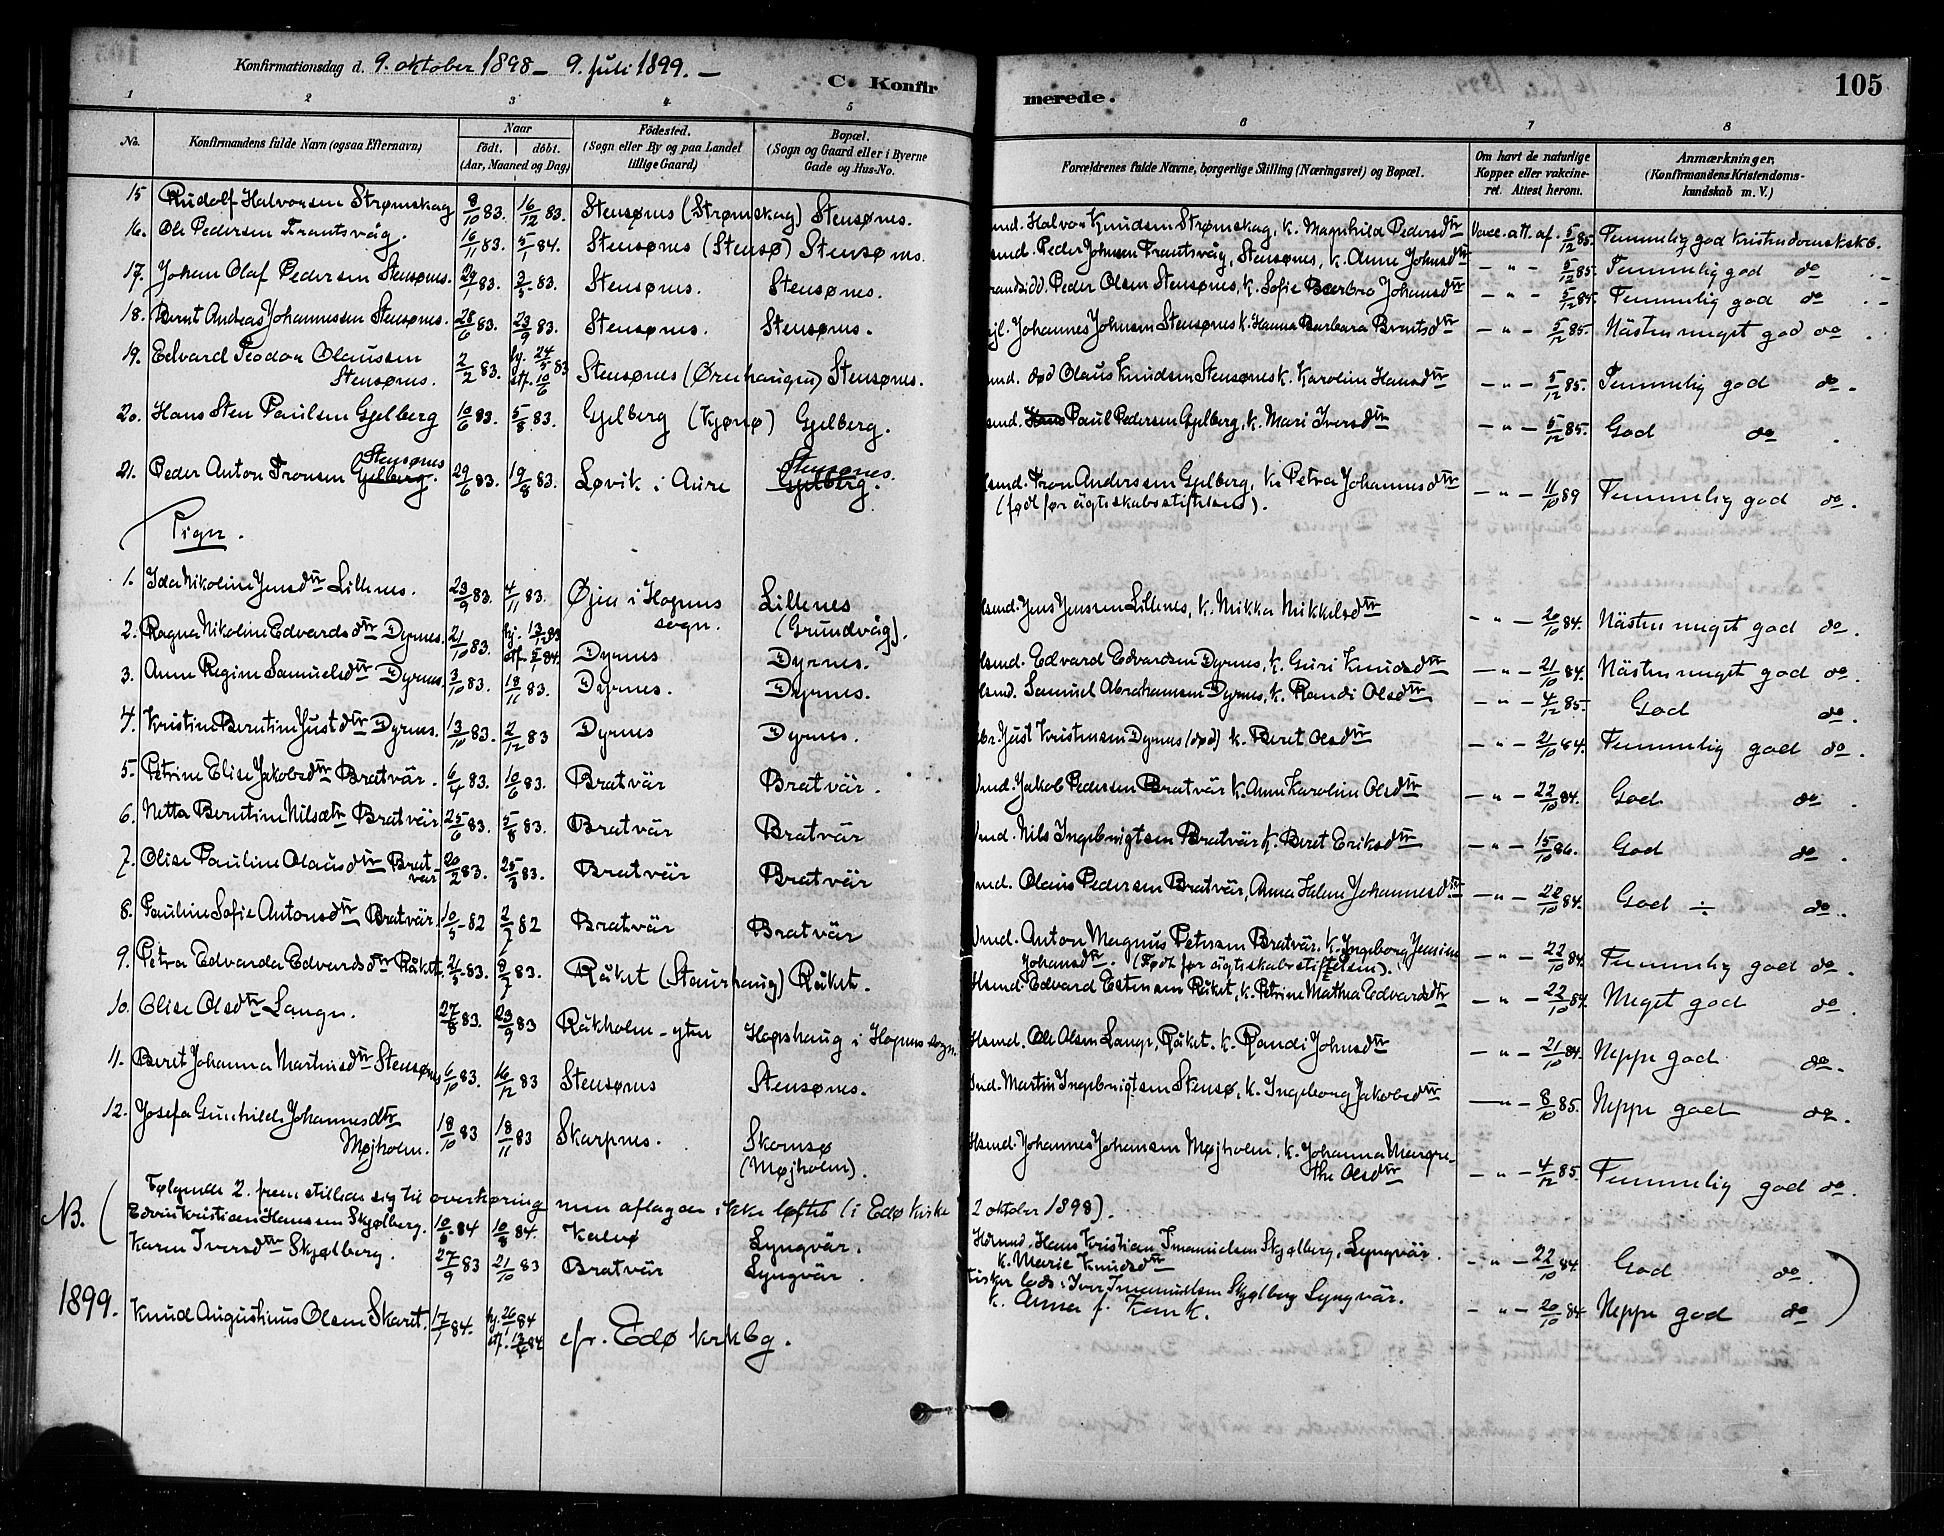 Konfirmationsdag d. 9. oktober 1898 – 9. Juli 1899. –
C. Konfirmerede.
105
1 2 3 4 5 6 7 8
No. | Konfirmandens fulde Navn (ogsaa Efternavn) | Naar født. døbt. (Aar, Maaned og Dag) | Fødested. (Sogn eller By og paa Landet tillige Gaard) | Bopæl. (Sogn og Gaard eller i Byerne Gade og Hus-No. | Forældrenes fulde Navne, borgerlige Stilling (Næringsvei) og Bopæl. | Om havt de naturlige Kopper eller vakcineret. Attest herom. | Anmærkninger. (Konfirmandens Kristendomskundskab m. V.)
15 Rudolf Halvorsen Strømskag 8/10 83. 16/12 83. Stensønes (Strømskag) Stensønes. smd. Halvor Knudsen Strømskag, k. Magnhild Pedersdtr Vacc. att. af. 5/12 85. Temmelig god Kristendomskskb.
16. Ole Pedersen Frantsvåg. 16/11 83. 5/1 84. Stensønes (Stensø) Stensønes. smd. Peder Johnsen Frantsvåg, Stensønes, k. Anne Johnsdtr – " – 5/12 85. Temmelig god do
17. Johan Olaf Pedersen Stensønes. 29/1 83. 3/3 83. Stensønes. Stensønes. Peder Olsen Stensønes, k. Sofie Barbro Johansdtr – " – 5/12 85. Temmelig god do
18. Bernt Andreas Johannessen Stensønes. 28/6 83. 23/9 83. Stensønes. Stensønes. Johannes Johnsen Stensønes k. Hanna Barbara Berntsdtr – " – 5/12 85. Nästen meget god do.
19. Edvard Teodor Olaussen
Stensønes. 2/2 83. hj. 24/5 83 stf. 10/6 Stensønes (Ørnhaugen) Stensønes. smd. død Olaus Knudsen Stensønes k. Karoline Hansdtr – " – 5/12 85. Temmelig god do.
20. Hans Sten Paulsen Gjelberg 10/6 83. 5/8 83. Gjelberg (Kjønø) Gjelberg. smd. Paul Pedersen Gjelberg, k. Mari Iversdtr – " – 5/12 85. God do.
21. Peder Anton Tronsen Gjelberg. Stensønes 29/6 83. 19/8 83. Løvik i Aure Gjelberg. Stensønes. smd. Tron Anderssen Gjelberg, k. Petra Johannesdtr – " – 11/10 89 Temmelig god do.
(født før ägteskabsstiftelsen).
Piger.
1. Ida Nikoline Jensdtr Lillenes. 23/9 83. 4/11 83. Øjen i Hopens sogn. Lillenes (Grundvåg). Jens Jenssen Lillenes, k. Mikka Mikkelsdtr – " – 20/10 84. Nästen meget god do.
2. Ragna Nikoline Edvardsdtr Dyrnes. 21/10 83. hj. 13/12 83 stf. 5/5 84. Dyrnes Dyrnes. smd. Edvard Edvardsen Dyrnes, k. Guri Knudsdtr – " – 21/10 84. Nästen meget god do.
3. Anne Regine Samuelsdtr Dyrnes. 3/10 83. 18/11 83. Dyrnes. Dyrnes. smd. Samuel Abrahamsen Dyrnes, k. Randi Olsdtr – " – 4/12 85. God do.
4. Kristine Berntine Justdtr Dyrnes. 13/10 83. 2/12 83 Dyrnes Dyrnes. Just Kristensen Dyrnes (død) k. Beret Olsdtr – " – 21/10 84. Temmelig god do.
5. Petrine Elise Jakobsdtr Bratvär. 6/4 83. 10/6 83. Bratvär Bratvär. Jakob Pedersen Bratvär k. Anne Karoline Olsdtr – " – 22/10 84. God do.
6. Netta Berntine Nilsdtr Bratvär. 25/6 83. 5/8 83. Bratvär Bratvär Nils Ingebrigtsen Bratvär k. Beret Eriksdtr – " – 15/10 86. God do.
7. Olise Pauline Olausdtr Bratvär 20/2 83. 25/3 83. Bratvär Bratvär Olaus Pedersen Bratvär, Anna Helene Johannesdtr – " – 22/10 84. God ÷ do.
8. Pauline Sofie Antonsdtr Bratvär. 10/5 82 2/7 82 Bratvär Bratvär Anton Magnus Petersen Bratvär. k. Ingeborg Jensine Johansdtr. (Født før ägteskabsstiftelsen). – " – 22/10 84. Temmelig god do.
9. Petra Edvarda Edvardsdtr Råket. 2/5 83. 8/7 83. Råket (Staurhaug) Råket. Hsmd. Edvard Estensen Råket, k. Petrine Mathea Edvardsdtr – " – 22/10 84. Meget god do.
10. Olise Olsdtr Langn. 27/8 83. 23/9 83 Råkholm – ytre Hopshaug i Hopens sogn. Hsmd. Ole Olsen Langn, Råket. k. Randi Johnsdtr – " – 21/10 84. Neppe god do.
11. Beret Johanna Martinsdtr Stensønes 6/10 83. 16/12 83 Stensønes Stensønes. Martin Ingebrigtsen Stensø, k. Ingeborg Jakobsdtr – " – 8/10 85. Neppe god do.
12. Josefa Gunhilde Johannesdtr
Møjholm. 18/10 83 18/11 83 Skarpnes. Skomsø (Møjholm). Hsmd. Johannes Johansen Møjholm, k. Johanna Margrethe Olsdtr – " – 4/12 85. Temmelig god do.
NB. Følgende 2. fremstillede sig til overhøring men aflagde ikke løftet (i Edø kirke 2 oktober 1898).
Edvin Kristian Hanssen Skjølberg. 10/6 84 10/8 84. Kalvø Lyngvär. Hans Kristian Imanuelsen Skjølberg, Lyngvär. k. Marie Knudsdtr – " – 22/10 84. God do.
Karen Iversdtr Skjølberg. 27/9 83 21/10 83 Bratvär Lyngvär. Fisker lods. Iver Imanuelsen Skjølberg Lyngvär. k. Anna – " – 20/10 84. Neppe god do
1899. Knud Augustinus Olsen Skaret. 17/1 84. hj. 26/1 84 stf. 13/6 84 cfr. Edø krkbg.